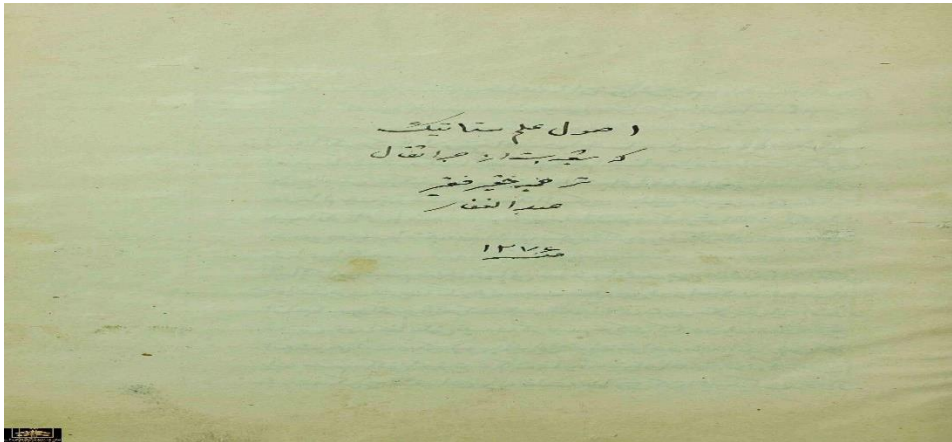 اصول علم ستاتیک
که شعبه‌ایست از جر اثقال
ترجمه حقیر فقیر
عبدالغفار
سنه ۱۲۷۶